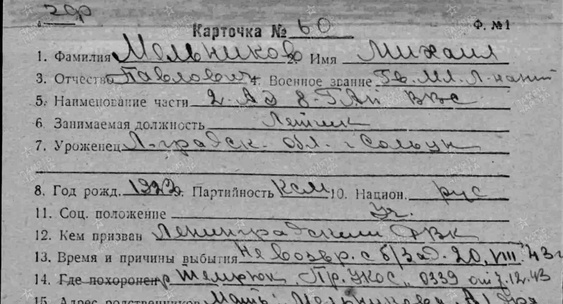 Карточка № 60 Ф. №1
1. Фамилия Мельников 2. Имя Михаил
3. Отчество Павлович 4. Военное звание Гв. Мл. Л-нант
5. Наименование части 2-АЭ 8-ГАП ВВС
6. Занимаемая должность Летчик
7. Уроженец Л-градск. обл. г Сольцы
8. Год рожд. 1923 9. Партийность Ксм 10. Национ. рус
11. Соц. положение Уч.
12. Кем призван Ленинградским РВК
13. Время и причины выбытия Не возвр. с б/зад. 20.VIII.43г
14. Где похоронен р Темрюк Пр. УКОС 0339 от 7.12.43
15. Адрес родственников Мать: Мельникова